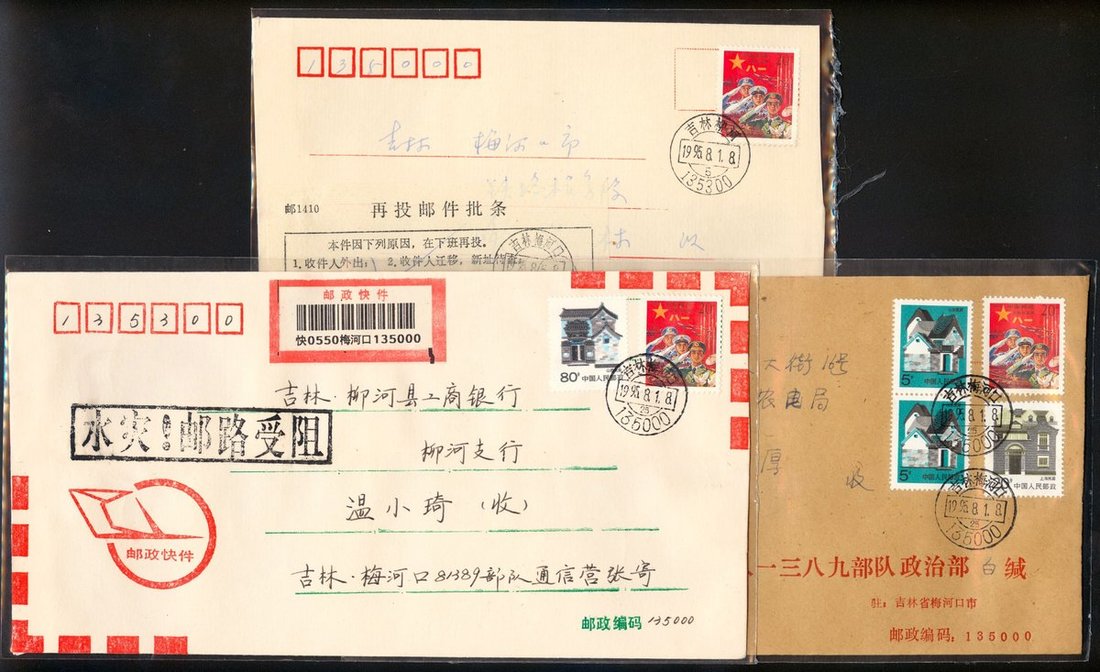 135000
八一
吉林柳河
1995.8.1.8.
5
135300
吉林 梅河口市
林 收
邮1410
再投邮件批条
本件因下列原因，在下班再投。
1.收件人外出； 2.收件人迁移，新址待查
吉林梅河口
135300
邮政快件
快0550梅河口135000
80分 中国人民邮政
八一
1995.8.1.8.
25
135000
吉林·柳河县工商银行
柳河支行
温小琦（收）
水灾！邮路受阻
邮政快件
吉林·梅河口81389部队通信营张寄
邮政编码 135000
5分 中国人民邮政
20分
八一
5分 中国人民邮政
上海民居
20分 中国人民邮政
大街16号
农电局
厚 收
吉林梅河口
1995.8.1.8.
25
135000
吉林梅河口
1995.8.1.8.
25
135000
一三八九部队政治部 白 缄
驻：吉林省梅河口市
邮政编码：135000